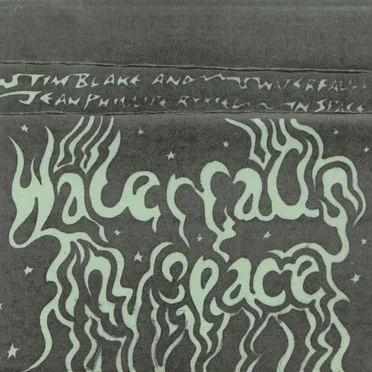 TIM BLAKE AND WATERFALLS
JEAN PHILLIPE RYKIEL IN SPACE
Waterfalls
In Space